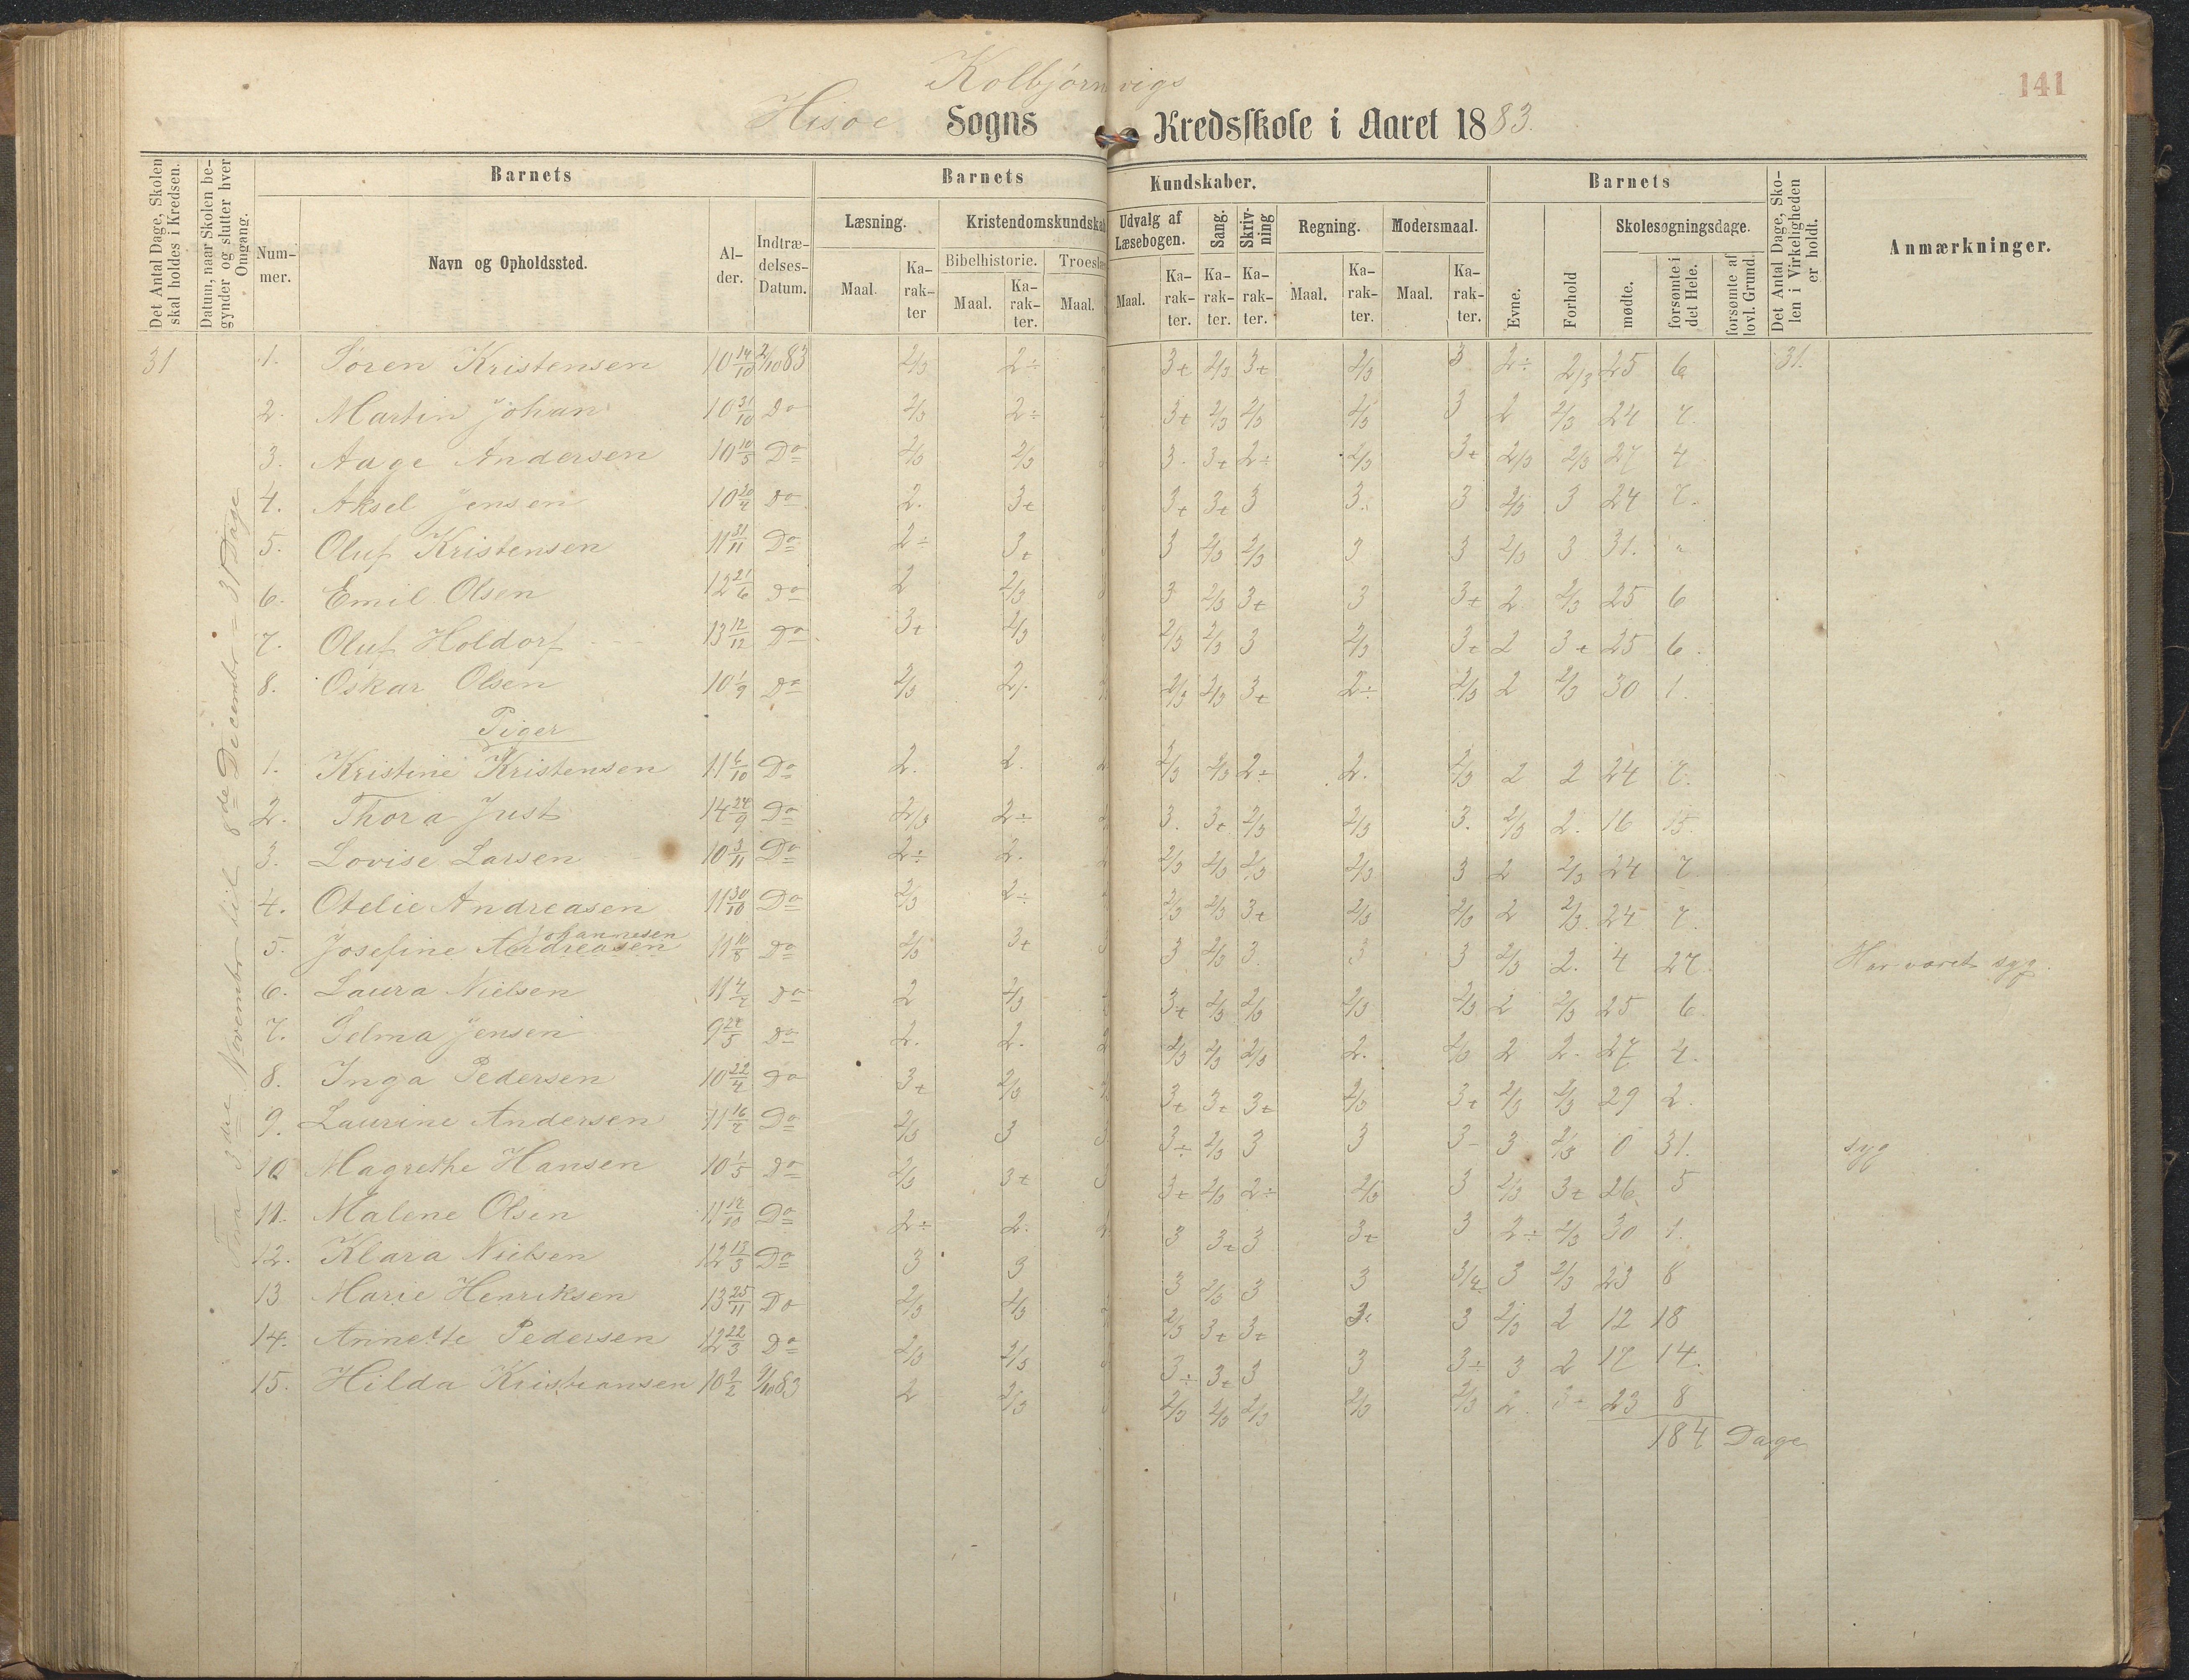 141
Kolbjørnvigs
Hisøe Sogns Kredsskole i Aaret 1883.
Det Antal Dage, Skolen skal holdes i Kredsen.
Datum, naar Skolen begynder og slutter hver Omgang.
Barnets
Nummer.
Navn og Opholdssted.
Alder.
Indtrædelses-Datum.
Barnets Kundskaber.
Læsning.
Maal.
Karakter
Kristendomskundskab
Bibelhistorie.
Maal.
Karakter.
Troeslæ
Maal.
Udvalg af Læsebogen.
Maal.
Karakter.
Sang.
Karakter.
Skrivning
Karakter.
Regning.
Maal.
Karakter.
Modersmaal.
Maal.
Karakter.
Barnets
Evne.
Forhold
Skolesøgningsdage.
mødte.
forsømte i det Hele.
forsømte af lovl. Grund.
Det Antal Dage, Skolen i Virkeligheden er holdt.
Anmærkninger.
Fra 3dre November til 8de December = 31 Dage
31 1. Søren Kristensen 10 14/10 2/10 83 2/3 2÷ 3+ 2/3 3+ 2/3 3 2÷ 2/3 25 6 31.
2. Martin Johan 10 31/10 Do 2/3 2÷ 3+ 2/3 2/3 2/3 3 2 2/3 24 7.
3. Aage Andersen 10 10/5 Do 2/3 2/3 3. 3+ 2÷ 2/3 3+ 2/3 2/3 27 4
4. Aksel Jensen 10 20/4 Do 2. 3+ 3+ 3+ 3 3. 3 2/3 3 24 7.
5. Oluf Kristensen 11 31/11 Do 2÷ 3+ 3 2/3 2/3 3 3 2/3 3 31. "
6. Emil Olsen 12 21/6 Do 2 2/3 3 2/3 3+ 3 3+ 2 2/3 25 6
7. Oluf Holdorf 13 12/12 Do 3+ 2/3 2/3 2/3 3 2/3 3+ 2 3+ 25 6.
8. Oskar Olsen 10 1/9 Do 2/3 2. 2/3 2/3 3+ 2÷ 2/3 2 2/3 30 1.
Piger
1. Kristine Kristensen 11 6/10 Do 2. 2. 2/3 2/3 2÷ 2. 2/3 2 2 24 7.
2. Thora Just 14 24/9 Do 2/3 2÷ 3. 3+ 2/3 2/3 3. 2/3 2. 16 15.
3. Lovise Larsen 10 3/11 Do 2÷ 2. 2/3 2/3 2/3 2/3 3 2 2/3 24 7
4. Otelie Andreasen 11 30/10 Do 2/3 2÷ 2/3 2/3 3+ 2/3 2/3 2 2/3 24 7.
Johannesen
5. Josefine Andreasen 11 10/8 Do 2/3 3+ 3 2/3 3. 3 3 2/3 2. 4 27. Har været syg.
6. Laura Nielsen 11 4/7 Do 2 2/3 3+ 2/3 2/3 2/3 2/3 2 2/3 25 6.
7. Selma Jensen 9 27/5 Do 2. 2. 2/3 2/3 2/3 2. 2/3 2 2. 27 4.
8. Inga Pedersen 10 22/4 Do 3+ 2/3 3+ 3+ 3+ 2/3 3+ 2/3 2/3 29 2.
9. Laurine Andersen 11 16/7 Do 2/3 3 3÷ 2/3 3 3 3- 3 2/3 0 31. syg
10 Magrethe Hansen 10 1/5 Do 2/3 3+ 3+ 2/3 2÷ 2/3 3 2/3 3+ 26 5
11. Malene Olsen 11 17/10 Do 2÷ 2. 3 3+ 3 3+ 3 2÷ 2/3 30 1.
12. Klara Nielsen 12 13/3 Do 3 3 3 2/3 3 3 3/4 3 2/3 23 8
13 Marie Henriksen 13 25/11 Do 2/3 2/3 2/3 3+ 3+ 3. 3 2/3 2 12 18
14. Annette Pedersen 12 22/3 Do 2/3 2/3 3÷ 3+ 3 3 3÷ 3 2 17 14.
15. Hilda Kristiansen 10 2/2 9/10 83 2 2/3 2/3 2/3 2/3 2/3 2/3 2. 3+ 23 8
184 Dage